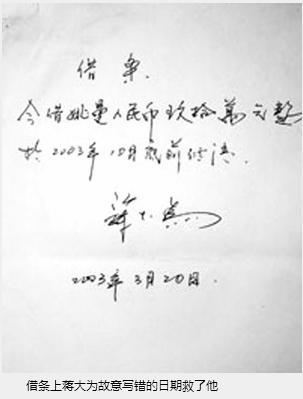 借条
今借姚曼人民币玖拾萬元整
于2003年10月底前付清
蒋大为
2003年3月20日.
借条上蒋大为故意写错的日期救了他